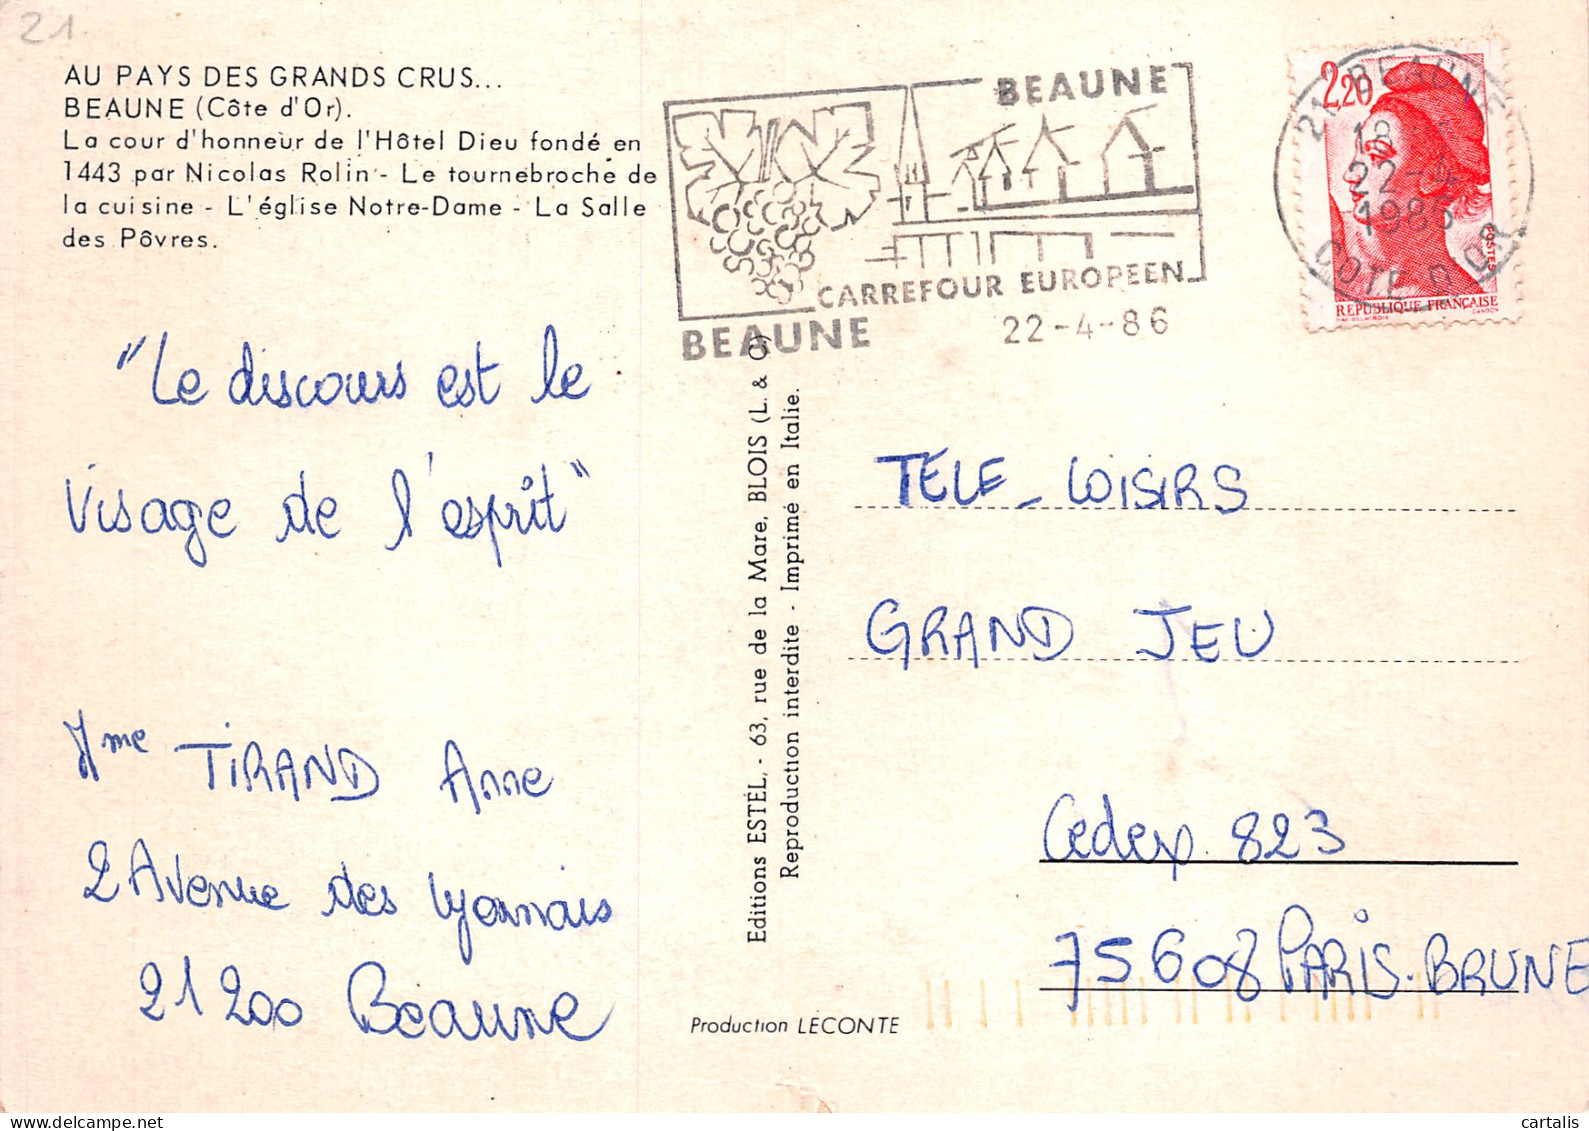 21
AU PAYS DES GRANDS CRUS...
BEAUNE (Côte d'Or).
La cour d'honneur de l'Hôtel Dieu fondé en
1443 par Nicolas Rolin - Le tournebroche de
la cuisine - L'église Notre-Dame - La Salle
des Pôvres.
"Le discours est le
visage de l'esprit"
Mme TIRAND Anne
2 Avenue des Lyonnais
21 200 Beaune
BEAUNE
CARREFOUR EUROPEEN
BEAUNE
22-4-86
2,20
21 BEAUNE
18
22-4
1986
COTE D'OR
POSTES
REPUBLIQUE FRANÇAISE
Editions ESTEL, - 63, rue de la Mare, BLOIS (L. & C)
Reproduction interdite - Imprimé en Italie.
TELE - LOISIRS
GRAND JEU
Cedex 823
75608 PARIS-BRUNE
Production LECONTE
cartalis